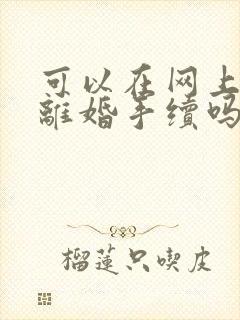 可以在网上
離婚手續吗
榴蓮只喫皮